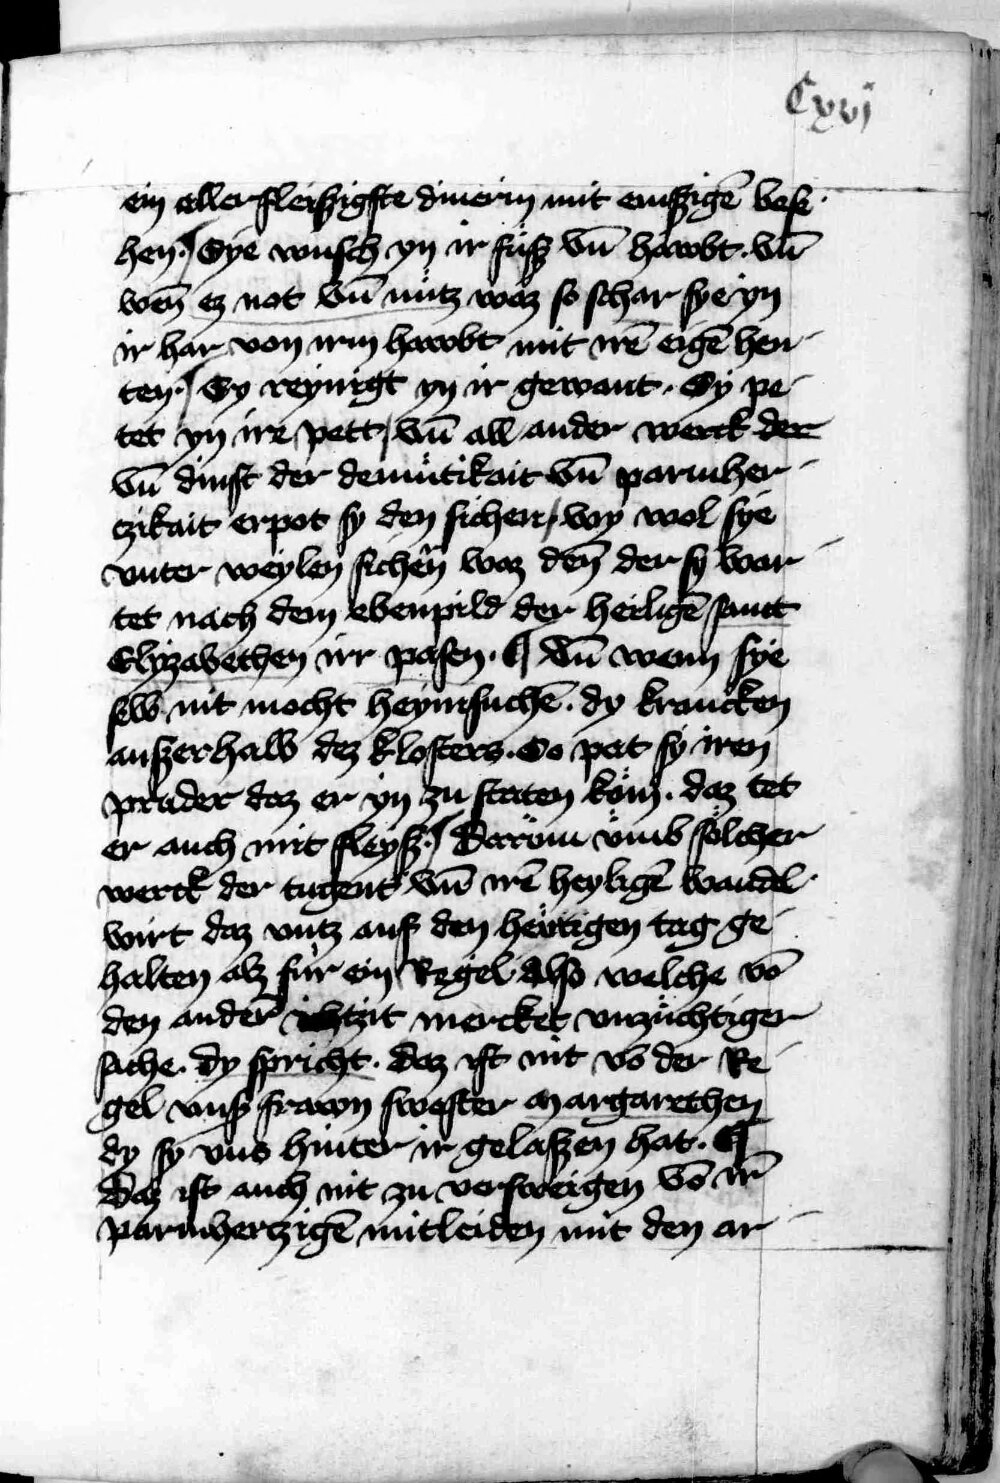 Cxvj
ein allerfleiszigste dinerin mit emszigē bese
hen. Sye wusch yn ir füsz vn̄ hawbt. vn̄
wen̄ ez not vn̄ nütz waz so schar sye yn
ir har von irm hawbt mit irē eigē hen
ten. Sy reynigt yn ir gewant. Sy pe
tet yn ire pett, vn̄ all ander werck der
vn̄ dinst der demütikait vn̄ parmher
tzikait erpot sy den sichen, wy wol sye
vnter weylen sichen̄ waz den̄ der sy war
tet nach dem ebenpild der heiligē sant
Elyzabethen irr pasen. ¶ Vn̄ wenn sye
sew nit mocht heymsuchē. dy krancken
auszerhalb dez klosters. So pat sy iren
pruder daz er yn zu staten köm. daz tet
er auch mit fleysz. Daröm vmb sölcher
werck der tugent vn̄ irē heyligē wandel
wirt daz vntz auf den hewtigen tag ge
halten alz für ein Regel Also welche vō
den ander̄ ichtzit mercket vnzüchtiger
sache. dy spricht. Daz ist nit vō der Re
gel vnsz frawn swester Margarethen
dy sy vns hinter ir gelaszen hat. ¶
Daz ist auch nit zu versweigen Vō ir̄
parmhertzigē mitleiden mit den ar